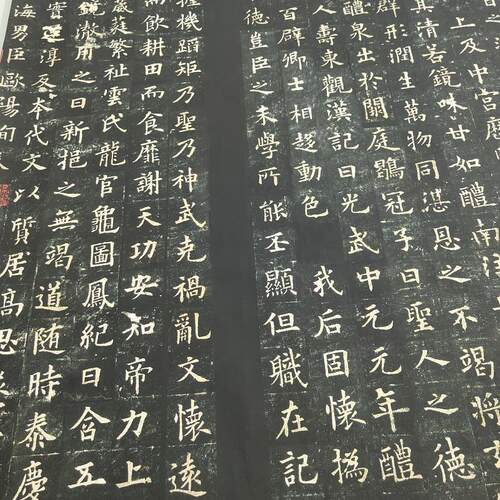 上及中宮歷
其清若鏡味甘如醴南注
群形潤生萬物同湛恩之不竭將
醴泉出於闕庭鶡冠子曰聖人之德
人壽東觀漢記曰光武中元元年醴
百辟卿士相趍動色 我后固懷撝
德豈臣之末學所能丕顯但職在記
握機蹈矩乃聖乃神武克禍亂文懷遠
而飲耕田而食靡謝天功安知帝力上
葳蕤繁祉雲氏龍官龜圖鳳紀日含五
鏡澂用之日新挹之無竭道隨時泰慶
實還淳反夲代文以質居高思
海男臣歐陽詢